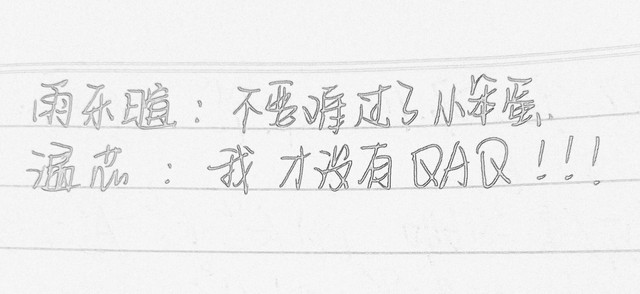 雨乐暄：不要难过了小笨蛋
温芯：我才没有QAQ!!!